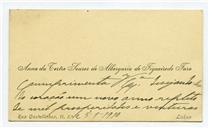 Anna da Costa Soares de Albergaria de Figueiredo Faro
Cumprimenta V. Ex.ª desejando
de coração um novo anno repleto
de mil prosperidades e venturas
Rua Castilho, 11, 5-1-1910 Lisboa